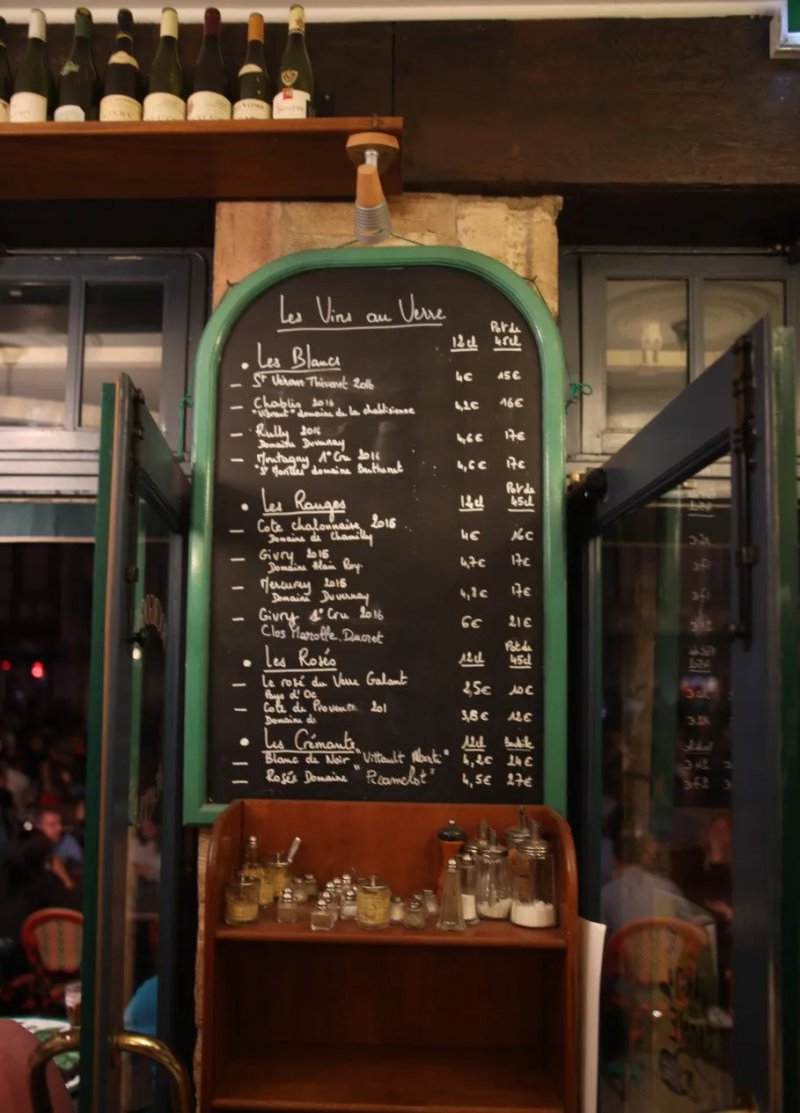 Les Vins au Verre
Les Blancs 12cl Pot de 45cl
St Véran Thivenet 2016 4€ 15€
Chablis 2016 4,2€ 16€
"Vibrant" domaine de la chablisienne
Rully 2016 4,6€ 17€
Domaine Duvernay
Montagny 1er Cru 2016 4,6€ 17€
domaine Berthenet
Les Rouges 12cl Pot de 45cl
Cote chalonnaise 2016 4€ 16€
Domaine de Chamilly
Givry 2016 4,7€ 17€
Domaine Alain Roy
Mercurey 2016 4,8€ 17€
Domaine Duvernay
Givry 1er Cru 2016 6€ 21€
Clos Marolle. Ducret
Les Rosés 12cl Pot de 45cl
Le rosé du Verre Galant 2,5€ 10€
Pays d'Oc
Cote de Provence 201 3,8€ 12€
Domaine de
Les Crémants 12cl
Blanc de Noir "Vittault Alberti" 4,2€ 24€
Rosés Domaine "Picamelot" 4,5€ 27€